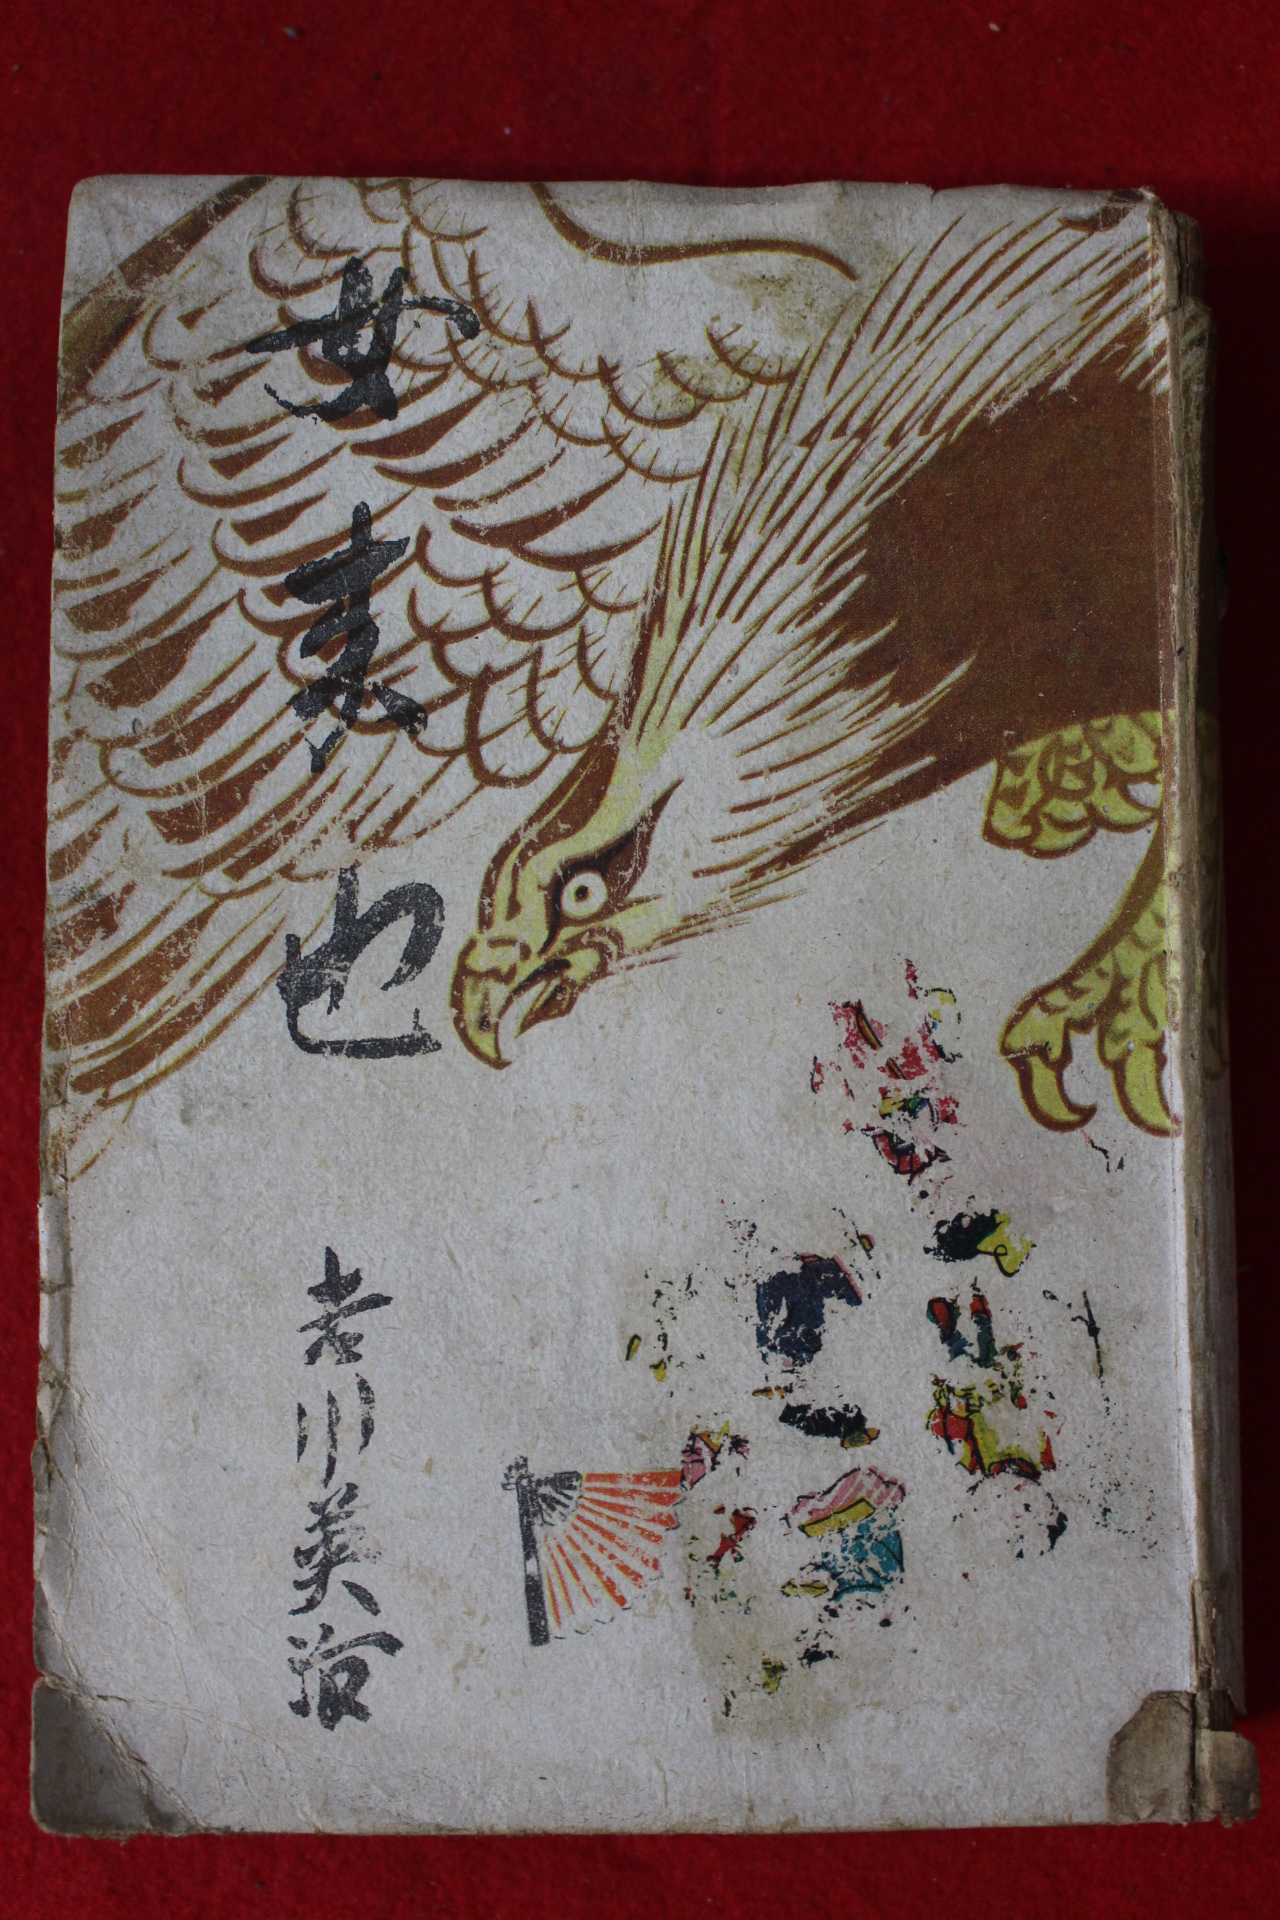 女来也
吉川英治